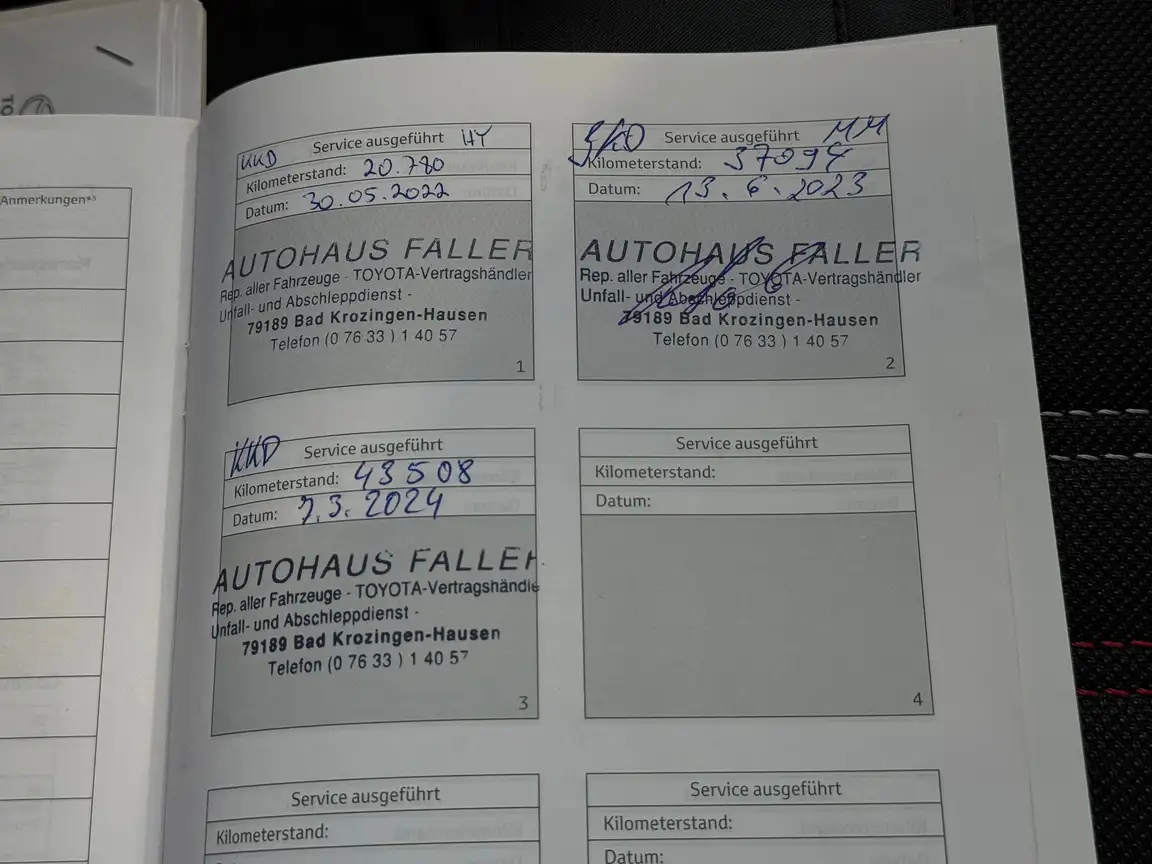 TO
Anmerkungen*³
KKD Service ausgeführt HY
Kilometerstand: 20.780
Datum: 30.05.2022
AUTOHAUS FALLER
Rep. aller Fahrzeuge - TOYOTA-Vertragshändler
Unfall- und Abschleppdienst -
79189 Bad Krozingen-Hausen
Telefon (0 76 33 ) 1 40 57
1
Service ausgeführt MM
Kilometerstand: 37094
Datum: 13.6.2023
AUTOHAUS FALLER
Rep. aller Fahrzeuge - TOYOTA-Vertragshändler
Unfall- und Abschleppdienst -
79189 Bad Krozingen-Hausen
Telefon (0 76 33 ) 1 40 57
2
KKD Service ausgeführt
Kilometerstand: 43508
Datum: 7.3.2024
AUTOHAUS FALLER
Rep. aller Fahrzeuge - TOYOTA-Vertragshändle
Unfall- und Abschleppdienst -
79189 Bad Krozingen-Hausen
Telefon (0 76 33 ) 1 40 57
3
Service ausgeführt
Kilometerstand:
Datum:
4
Service ausgeführt
Kilometerstand:
Service ausgeführt
Kilometerstand:
Datum: